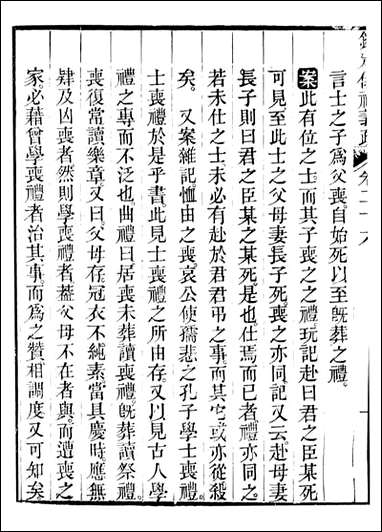 言士之子為父喪自始死以至旣葬之禮
案此有位之士而其子喪之之禮玩記赴曰君之臣某死
可見至此士之父母妻長子死喪之亦同記又云赴母妻
長子則曰君之臣某之某死是也仕焉而已者禮亦同之
若未仕之士未必有赴於君君弔之事而其它或亦從殺
矣又案雜記恤由之喪哀公使孺悲之孔子學士喪禮
士喪禮於是乎書此見士喪禮之所由存又以見古人學
禮之專而不泛也曲禮曰居喪未葬讀喪禮旣葬讀祭禮
喪復常讀樂章又曰父母存冠衣不純素當具慶時應無
肄及凶喪者然則學喪禮者葢父母不在者與而遭喪之
家必藉曾學喪禮者治其事而為之贊相調度又可知矣
欽定儀禮義疏 卷二十六